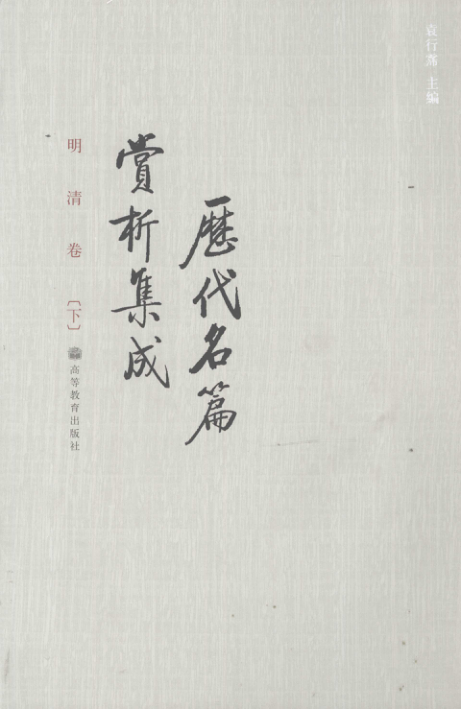 袁行霈 主编
歷代名篇
赏析集成
明清卷〔下〕
高等教育出版社